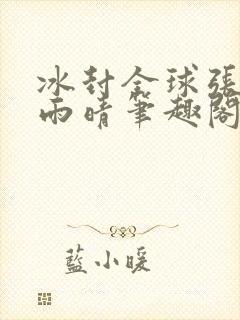 冰封全球張
雨晴筆趣閣
藍小暖